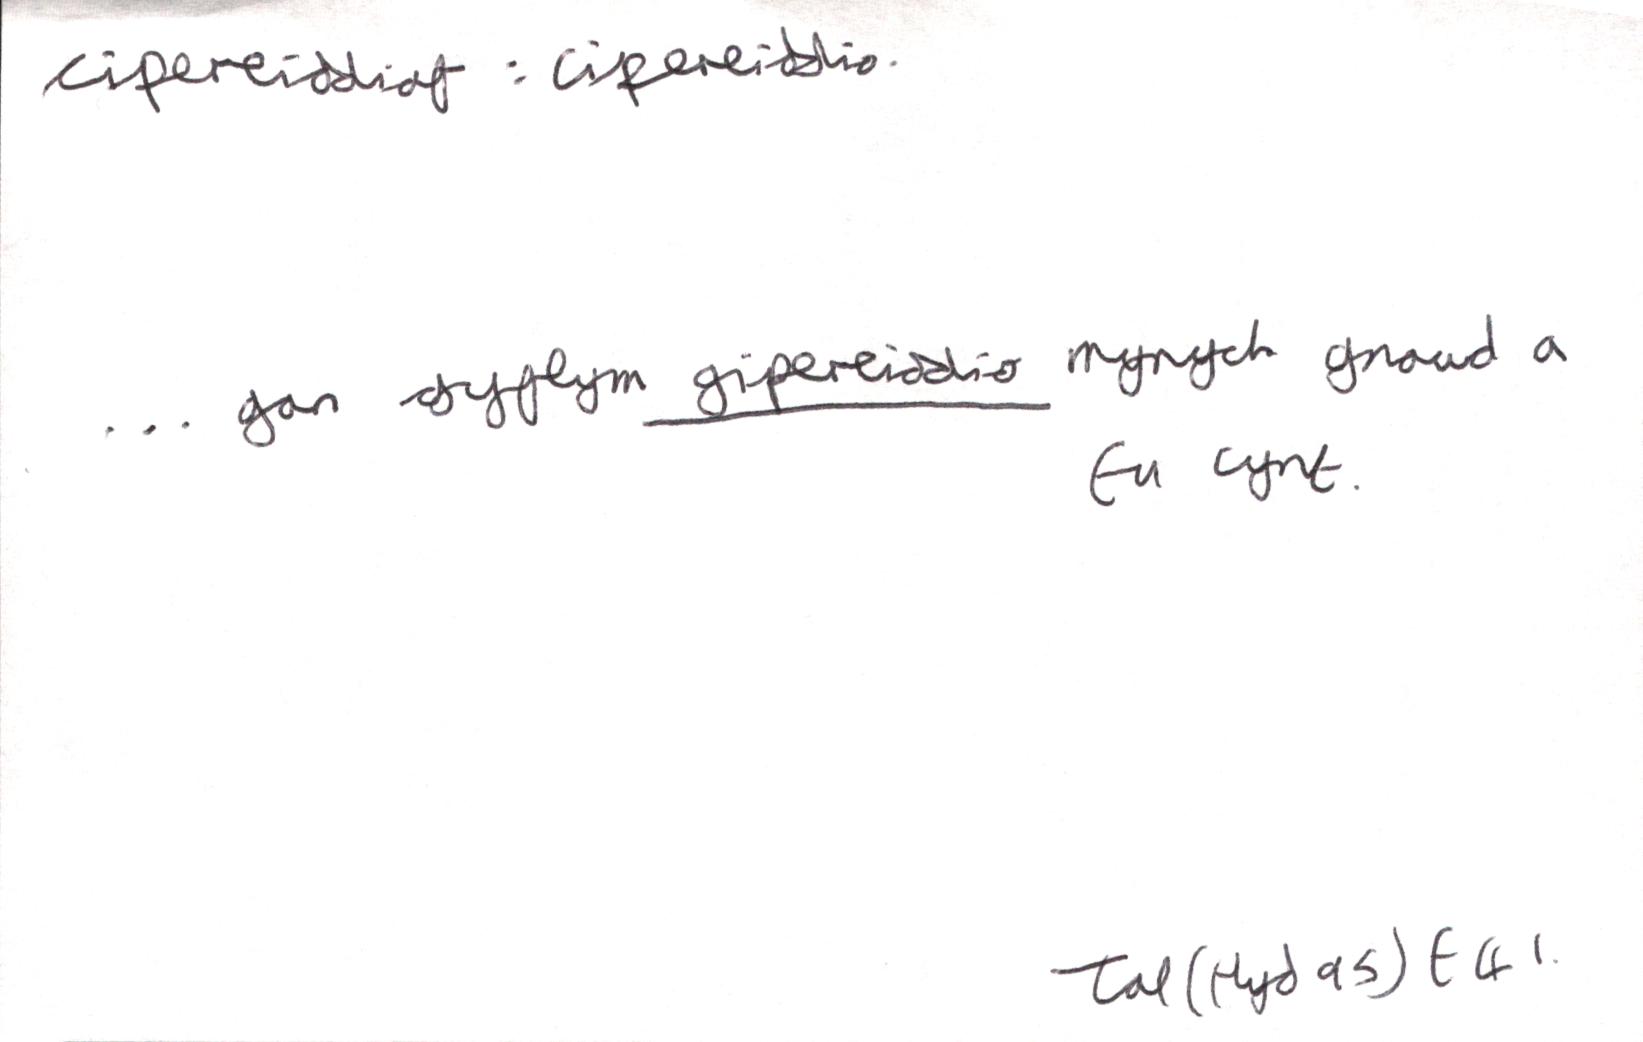 cipereiddiaf : cipereiddio.
... gan dyflym gipereiddio mynych gnawd a
fu cynt.
Tal (Hyd 95) t 41.